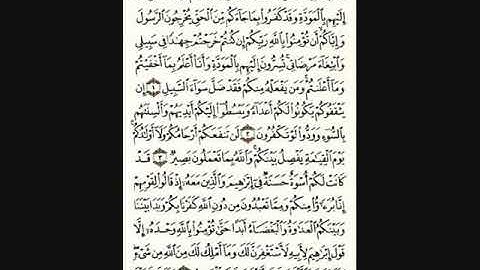 إِلَيْهِم بِالْمَوَدَّةِ وَقَدْ كَفَرُوا۟ بِمَا جَآءَكُم مِّنَ ٱلْحَقِّ يُخْرِجُونَ ٱلرَّسُولَ
وَإِيَّاكُمْ أَن تُؤْمِنُوا۟ بِٱللَّهِ رَبِّكُمْ إِن كُنتُمْ خَرَجْتُمْ جِهَٰدًا فِى سَبِيلِى
وَٱبْتِغَآءَ مَرْضَاتِى تُسِرُّونَ إِلَيْهِم بِٱلْمَوَدَّةِ وَأَنَا۠ أَعْلَمُ بِمَآ أَخْفَيْتُمْ
وَمَآ أَعْلَنتُمْ وَمَن يَفْعَلْهُ مِنكُمْ فَقَدْ ضَلَّ سَوَآءَ ٱلسَّبِيلِ ١ إِن
يَثْقَفُوكُمْ يَكُونُوا۟ لَكُمْ أَعْدَآءً وَيَبْسُطُوٓا۟ إِلَيْكُمْ أَيْدِيَهُمْ وَأَلْسِنَتَهُم
بِٱلسُّوٓءِ وَوَدُّوا۟ لَوْ تَكْفُرُونَ ٢ لَن تَنفَعَكُمْ أَرْحَامُكُمْ وَلَآ أَوْلَٰدُكُمْ
يَوْمَ ٱلْقِيَٰمَةِ يَفْصِلُ بَيْنَكُمْ وَٱللَّهُ بِمَا تَعْمَلُونَ بَصِيرٌ ٣ قَدْ
كَانَتْ لَكُمْ أُسْوَةٌ حَسَنَةٌ فِىٓ إِبْرَٰهِيمَ وَٱلَّذِينَ مَعَهُۥٓ إِذْ قَالُوا۟ لِقَوْمِهِمْ
إِنَّا بُرَءَٰٓؤُا۟ مِنكُمْ وَمِمَّا تَعْبُدُونَ مِن دُونِ ٱللَّهِ كَفَرْنَا بِكُمْ وَبَدَا بَيْنَنَا
وَبَيْنَكُمُ ٱلْعَدَٰوَةُ وَٱلْبَغْضَآءُ أَبَدًا حَتَّىٰ تُؤْمِنُوا۟ بِٱللَّهِ وَحْدَهُۥٓ إِلَّا
قَوْلَ إِبْرَٰهِيمَ لِأَبِيهِ لَأَسْتَغْفِرَنَّ لَكَ وَمَآ أَمْلِكُ لَكَ مِنَ ٱللَّهِ مِن شَىْءٍ